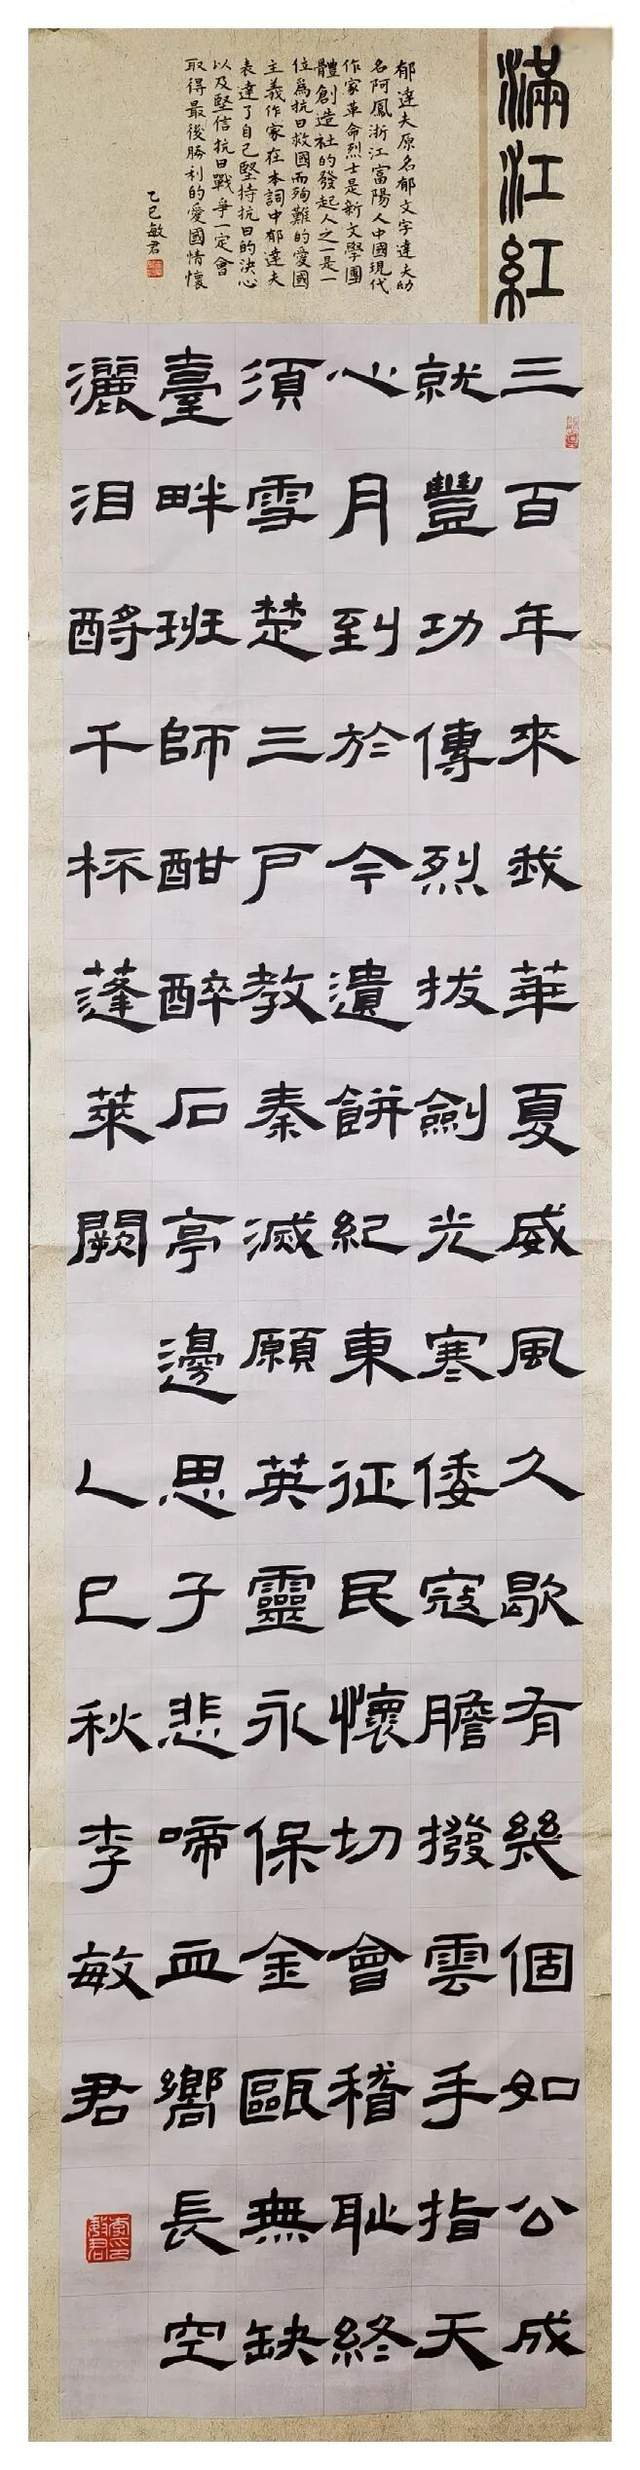 滿江紅
郁達夫原名郁文字達夫幼
名阿鳳浙江富陽人中國現代
作家革命烈士是新文學團
體創造社的發起人之一是一
位爲抗日救國而殉難的愛國
主義作家在本詞中郁達夫
表達了自己堅持抗日的決心
以及堅信抗日戰爭一定會
取得最後勝利的愛國情懷
乙巳敏君
三百年來我華夏威風久歇有幾個如公成
就豐功傳烈拔劍光寒倭寇膽撥雲手指天
心月到於今遺餅紀東征民懷切會稽恥終
須雪楚三戶教秦滅願英靈永保金甌無缺
臺畔班師酣醉石亭邊思子悲啼血嚮長空
灑泪酹千杯蓬萊闕 乙巳秋李敏君
李敏君印